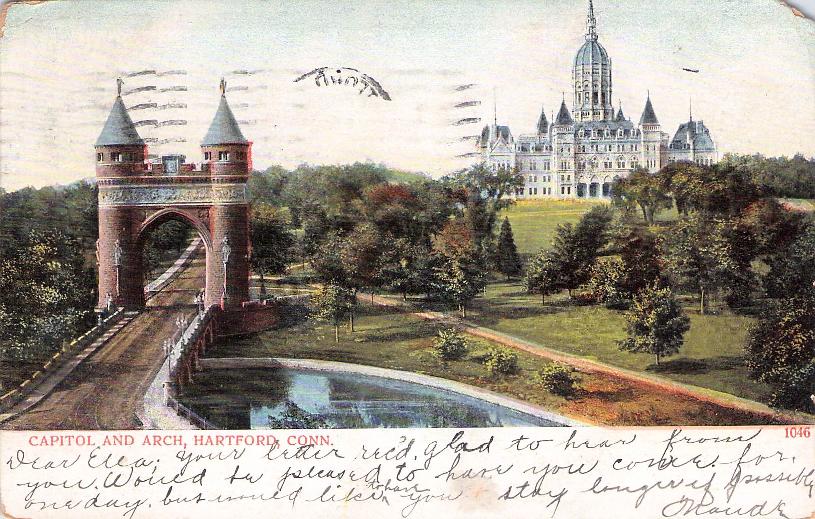 CAPITOL AND ARCH, HARTFORD, CONN. 1046
Dear Ella. Your letter rec'd. glad to hear from
you. Would be pleased to have you come. for.
one day. but would like to have you stay longer if possibly
Maude